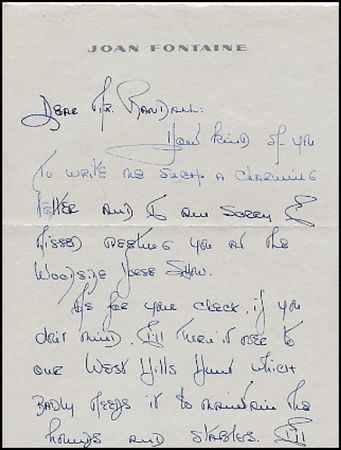 JOAN FONTAINE
Dear Mr. Randall:
How kind of you
to write me such a charming
letter and I am sorry I
missed meeting you at the
Woodside Horse Show.
As for your check, if you
don't mind, I'll turn it over to
our West Hills Hunt which
badly needs it to maintain the
hounds and stables. I'll